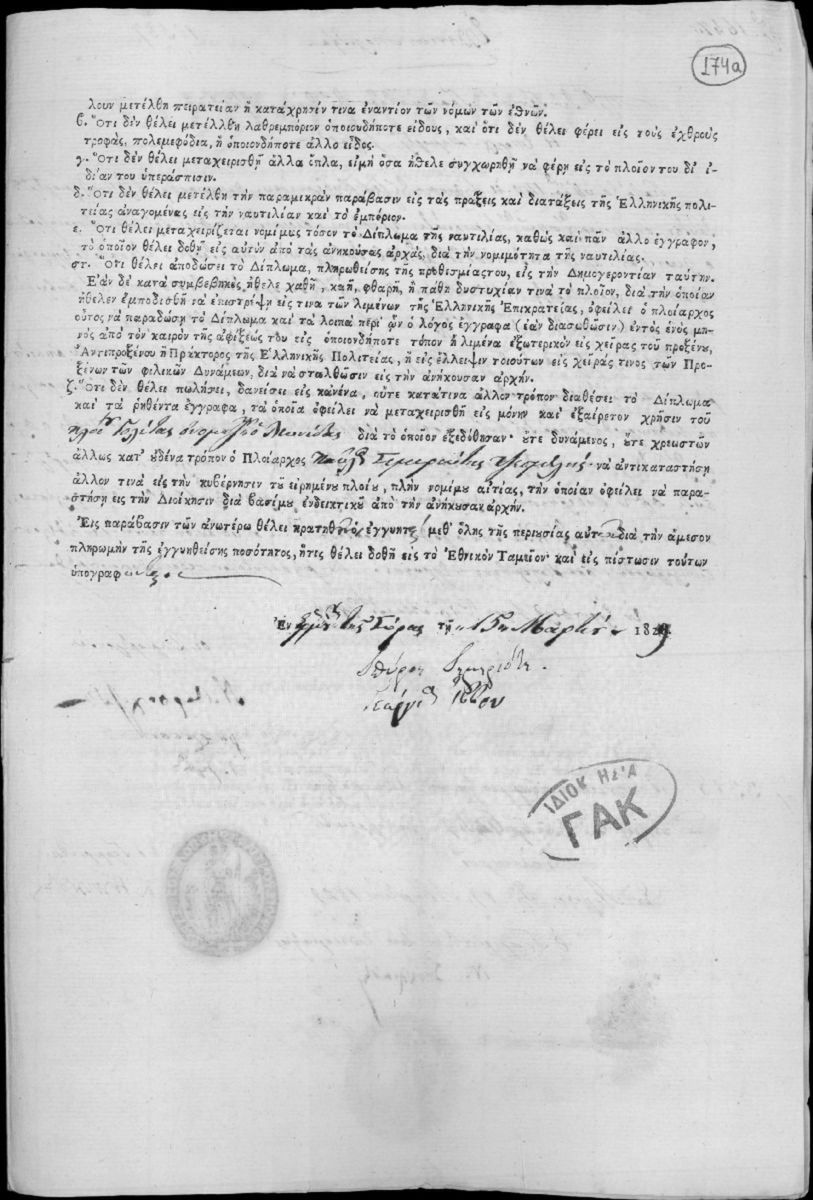 174a
λουν μετέλθη πειρατείαν ἢ κατάχρησίν τινα ἐναντίον τῶν νόμων τῶν ἐθνῶν.
β. Ὅτι δὲν θέλει μετέλθη λαθρεμπόριον ὁποιουδήποτε εἴδους, καὶ ὅτι δὲν θέλει φέρει εἰς τοὺς ἐχθροὺς
τροφὰς, πολεμεφόδια, ἢ ὁποιονδήποτε ἄλλο εἶδος.
γ. Ὅτι δὲν θέλει μεταχειρισθῆ ἄλλα ὅπλα, εἰμὴ ὅσα ἤθελε συγχωρηθῆ νὰ φέρῃ εἰς τὸ πλοῖόν του δι' ἰ-
δίαν του ὑπεράσπισιν.
δ. Ὅτι δὲν θέλει μετέλθη τὴν παραμικρὰν παράβασιν εἰς τὰς πράξεις καὶ διατάξεις τῆς Ἑλληνικῆς πολι-
τείας ἀναγομένας εἰς τὴν ναυτιλίαν καὶ τὸ ἐμπόριον.
ε. Ὅτι θέλει μεταχειρίζεται νομίμως τόσον τὸ Δίπλωμα τῆς ναυτιλίας, καθὼς καὶ πᾶν ἄλλο ἔγγραφον,
τὸ ὁποῖον θέλει δοθῆ εἰς αὐτὸν ἀπὸ τὰς ἀνηκούσας ἀρχὰς, διὰ τὴν νομιμότητα τῆς ναυτιλίας.
στ. Ὅτι θέλει ἀποδώσει τὸ Δίπλωμα, πληρωθείσης τῆς προθεσμίας του, εἰς τὴν Δημογεροντίαν ταύτην.
Ἐὰν δὲ κατὰ συμβεβηκὸς ἤθελε χαθῆ, καῆ, φθαρῆ, ἢ πάθῃ δυστυχίαν τινὰ τὸ πλοῖον, διὰ τὴν ὁποίαν
ἤθελεν ἐμποδισθῆ νὰ ἐπιστρέψῃ εἴς τινα τῶν λιμένων τῆς Ἑλληνικῆς Ἐπικρατείας, ὀφείλει ὁ πλοίαρχος
οὗτος νὰ παραδώσῃ τὸ Δίπλωμα καὶ τὰ λοιπὰ περὶ ὧν ὁ λόγος ἔγγραφα (ἐὰν διασωθῶσιν) ἐντὸς ἑνὸς μη-
νὸς ἀπὸ τὸν καιρὸν τῆς ἀφίξεώς του εἰς ὁποιονδήποτε τόπον ἢ λιμένα ἐξωτερικὸν εἰς χεῖρας τοῦ προξένου,
Ἀντιπροξένου ἢ Πράκτορος τῆς Ἑλληνικῆς Πολιτείας, ἢ εἰς ἔλλειψιν τοιούτων εἰς χεῖράς τινος τῶν Προ-
ξένων τῶν φιλικῶν Δυνάμεων, διὰ νὰ σταλθῶσιν εἰς τὴν ἀνήκουσαν ἀρχήν.
ζ. Ὅτι δὲν θέλει πωλήσει, δανείσει εἰς κανένα, οὔτε κατ' ἄλλον τρόπον διαθέσει τὸ Δίπλωμα
καὶ τὰ ῥηθέντα ἔγγραφα, τὰ ὁποῖα ὀφείλει νὰ μεταχειρισθῆ εἰς μόνην καὶ ἐξαίρετον χρῆσιν τοῦ
διὰ τὸ ὁποῖον ἐξεδόθησαν· οὔτε δυνάμενος, οὔτε χρεωστῶν
ἄλλως κατ' οὐδένα τρόπον ὁ Πλοίαρχος νὰ ἀντικαταστήσῃ
ἄλλον τινὰ εἰς τὴν κυβέρνησιν τοῦ εἰρημένου πλοίου, πλὴν νομίμου αἰτίας, τὴν ὁποίαν ὀφείλει νὰ παρα-
στήσῃ εἰς τὴν Διοίκησιν διὰ βασίμου ἐνδεικτικοῦ ἀπὸ τὴν ἀνήκουσαν ἀρχήν.
Εἰς παράβασιν τῶν ἀνωτέρω θέλει κρατηθῆ ὁ ἐγγυητὴς μεθ' ὅλης τῆς περιουσίας αὐτοῦ διὰ τὴν ἄμεσον
πληρωμὴν τῆς ἐγγυηθείσης ποσότητος, ἥτις θέλει δοθῆ εἰς τὸ Ἐθνικὸν Ταμεῖον· καὶ εἰς πίστωσιν τούτων
ὑπογραφ
Ἐν τῆς Σύρας τῇ 15 Μαρτίου 1829
ΙΔΙΟΚΤΗΣΙΑ
ΓΑΚ